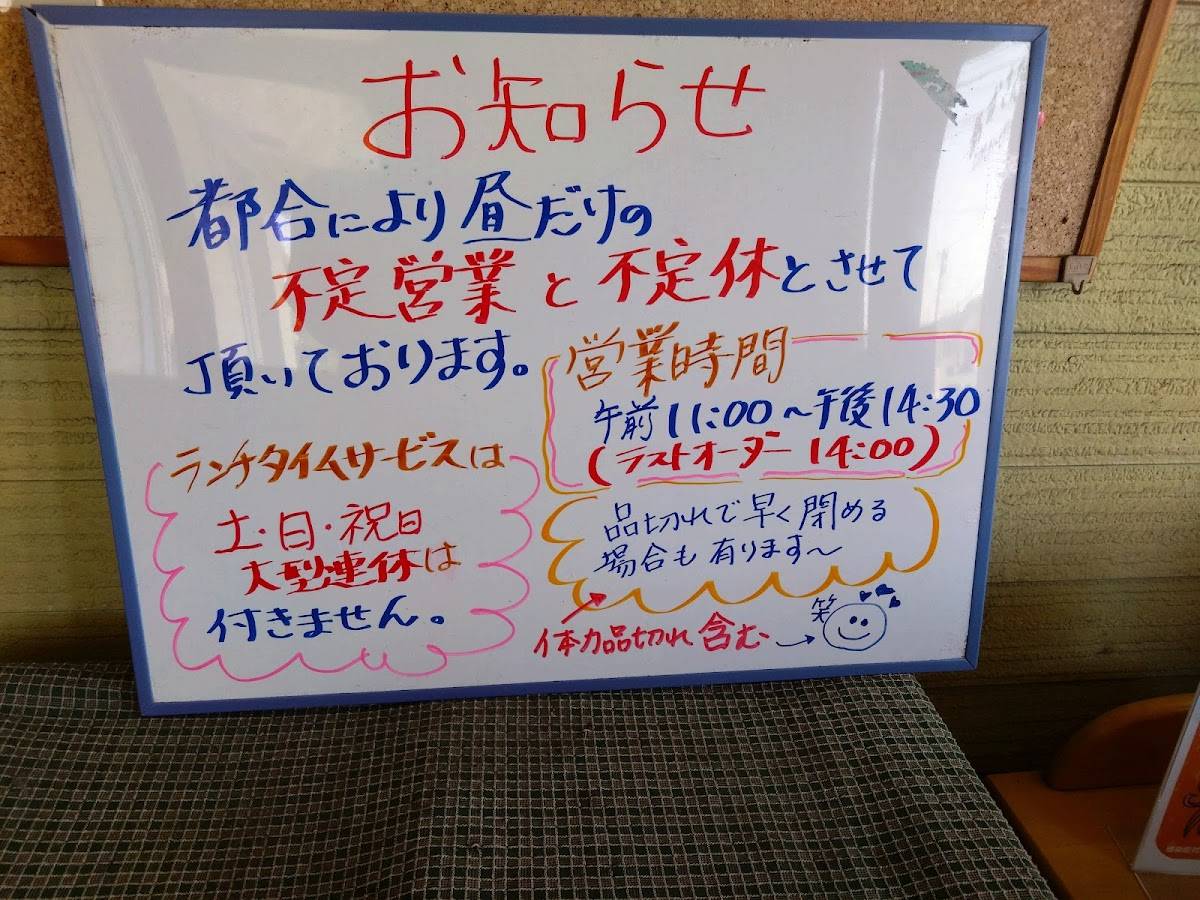 お知らせ
都合により昼だけの
不定営業と不定休とさせて
頂いております。
営業時間
午前11:00〜午後14:30
(ラストオーダー 14:00)
ランチタイムサービスは
土・日・祝日
大型連休は
付きません。
品切れで早く閉める
場合も有ります〜
体力品切れ含む→
笑